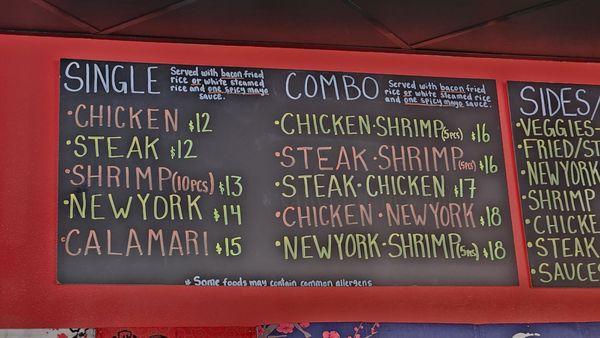 SINGLE
Served with bacon fried
rice or white steamed
rice and one spicy mayo
sauce.
•CHICKEN $12
•STEAK $12
•SHRIMP(10pcs) $13
•NEWYORK $14
•CALAMARI $15
COMBO
Served with bacon fried
rice or white steamed rice.
and one spicy mayo sauce.
•CHICKEN•SHRIMP(5pcs) $16
•STEAK•SHRIMP(5pcs) $16
•STEAK•CHICKEN $17
•CHICKEN•NEWYORK $18
•NEWYORK•SHRIMP(5pcs) $18
* Some foods may contain common allergens
SIDES/
•VEGGIES-
•FRIED/ST
•NEWYORK
•SHRIMP
•CHICKE
•STEAK
•SAUCES